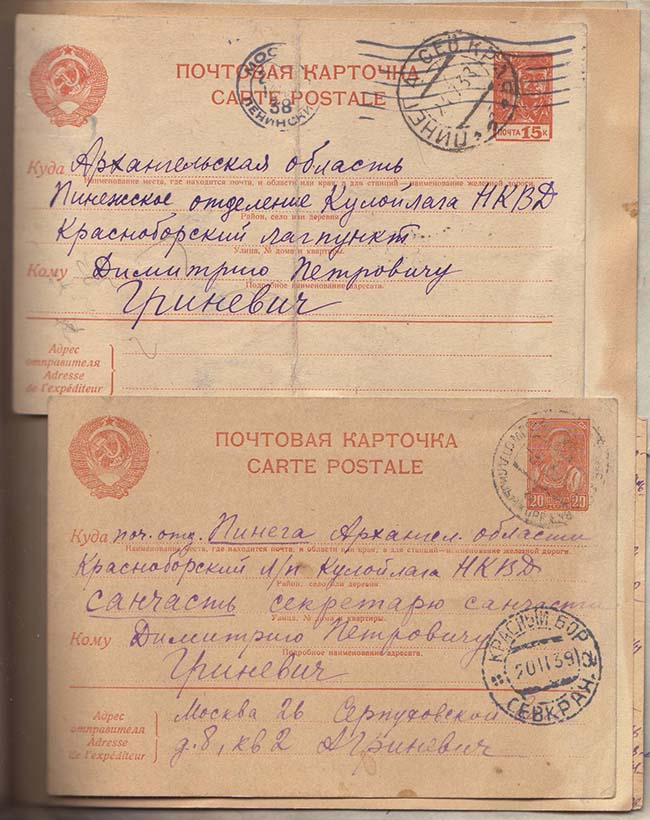 ПОЧТОВАЯ КАРТОЧКА
CARTE POSTALE
МОС
38
ЛЕНИНСКИ
ПИНЕГА СЕВ КРАЯ
ПОЧТА 15 К
Куда Архангельская область
Наименование места, где находится почта, и области или края, а для станций—наименование железной дороги.
Пинежское отделение Кулойлага НКВД
Район, село или деревня.
Красноборский лагпункт
Улица, № дома и квартиры.
Кому Димитрию Петровичу
Подробное наименование адресата.
Гриневич
Адрес
отправителя
Adresse
de l'expéditeur
ПОЧТОВАЯ КАРТОЧКА
CARTE POSTALE
20 20
Куда поч. отд. Пинега Архангел. области
Наименование места, где находится почта, и области или края, а для станций—наименование железной дороги.
Красноборский л/п Кулойлага НКВД
Район, село или деревня.
санчасть секретарю санчасти
Улица, № дома и квартиры.
Кому Димитрию Петровичу
Подробное наименование адресата.
Гриневич
КРАСНЫЙ БОР
20 11 39
СЕВ КРАЯ
Адрес
отправителя
Adresse
de l'expéditeur
Москва 26 Серпуховской
д. 8, кв 2 А Гриневич